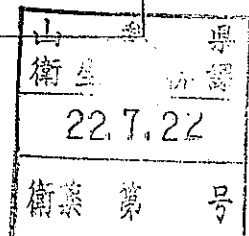 山 県
衛生
22.7.22
衛薬 第 号